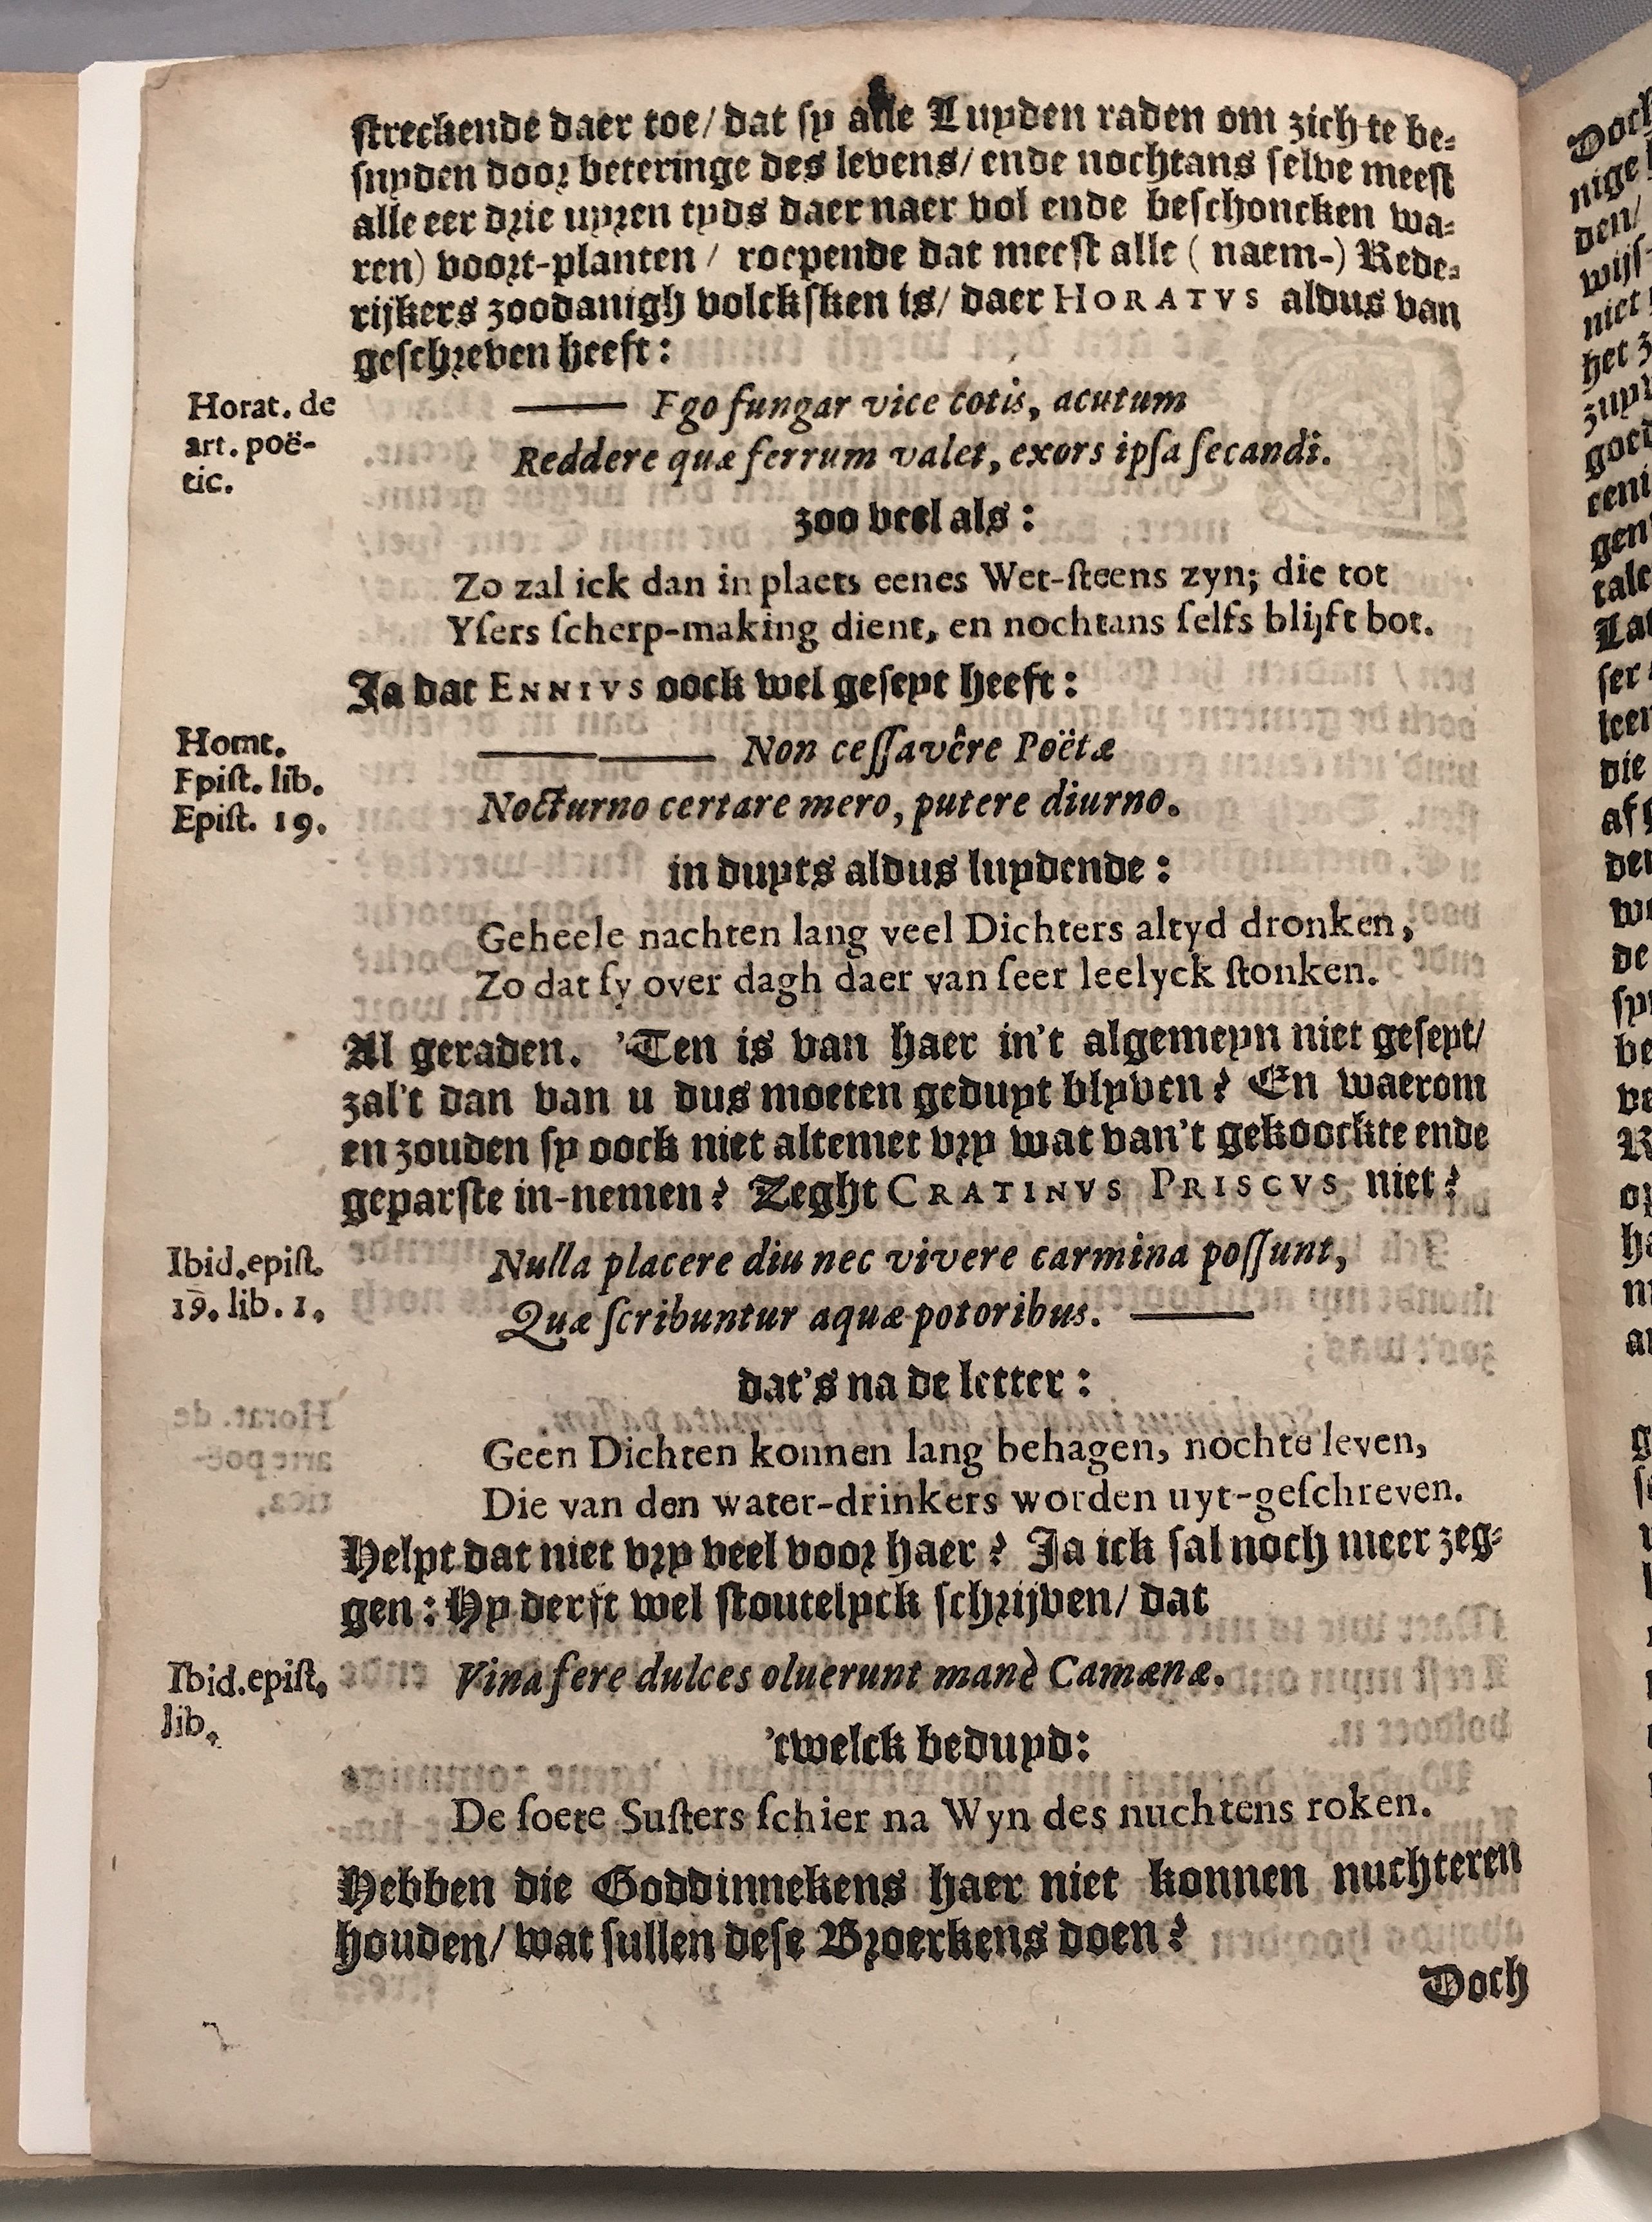 ſtreckende daer toe/ dat ſy alle Luyden raden om zich te be-
ſnyden door beteringe des levens/ ende nochtans ſelve meeſt
alle eer drie uyren tyds daer naer vol ende beſchoncken wa-
ren) voort-planten / roepende dat meeſt alle ( naem-) Rede-
rijkers zoodanigh volckſken is/ daer HORATVS aldus van
geſchreven heeft:
Horat. de
art. poë-
tic.
—— Fgo fungar vice cotis, acutum
Reddere quæ ferrum valet, exors ipſa ſecandi.
zoo veel als:
Zo zal ick dan in plaets eenes Wet-ſteens zyn; die tot
Yſers ſcherp-making dient, en nochtans ſelfs blijft bot.
Ja dat ENNIVS oock wel geſeyt heeft:
Homt.
Fpiſt. lib.
Epiſt. 19.
—— —— Non ceſſavêre Poëtæ
Nocturno certare mero, putere diurno.
in duyts aldus luydende:
Geheele nachten lang veel Dichters altyd dronken,
Zo dat ſy over dagh daer van ſeer leelyck ſtonken.
Al geraden. 'Ten is van haer in't algemeyn niet geſeyt/
zal't dan van u dus moeten geduyt blyven? En waerom
en zouden ſy oock niet altemet vry wat van't gekoockte ende
geparſte in-nemen? Zeght CRATINVS PRISCVS niet?
Ibid. epiſt.
19. lib. 1.
Nulla placere diu nec vivere carmina poſſunt,
Quæ ſcribuntur aquæ potoribus. ——
dat's na de letter:
Geen Dichten konnen lang behagen, nochte leven,
Die van den water-drinkers worden uyt-geſchreven.
Helpt dat niet vry veel voor haer? Ja ick ſal noch meer zeg-
gen: Hy derft wel ſtoutelyck ſchrijven/ dat
Ibid. epiſt.
lib.
Vina fere dulces oluerunt manè Camænæ.
'twelck beduyd:
De ſoete Suſters ſchier na Wyn des nuchtens roken.
Hebben die Goddinnekens haer niet konnen nuchteren
houden/ wat ſullen deſe Broerkens doen?
Doch